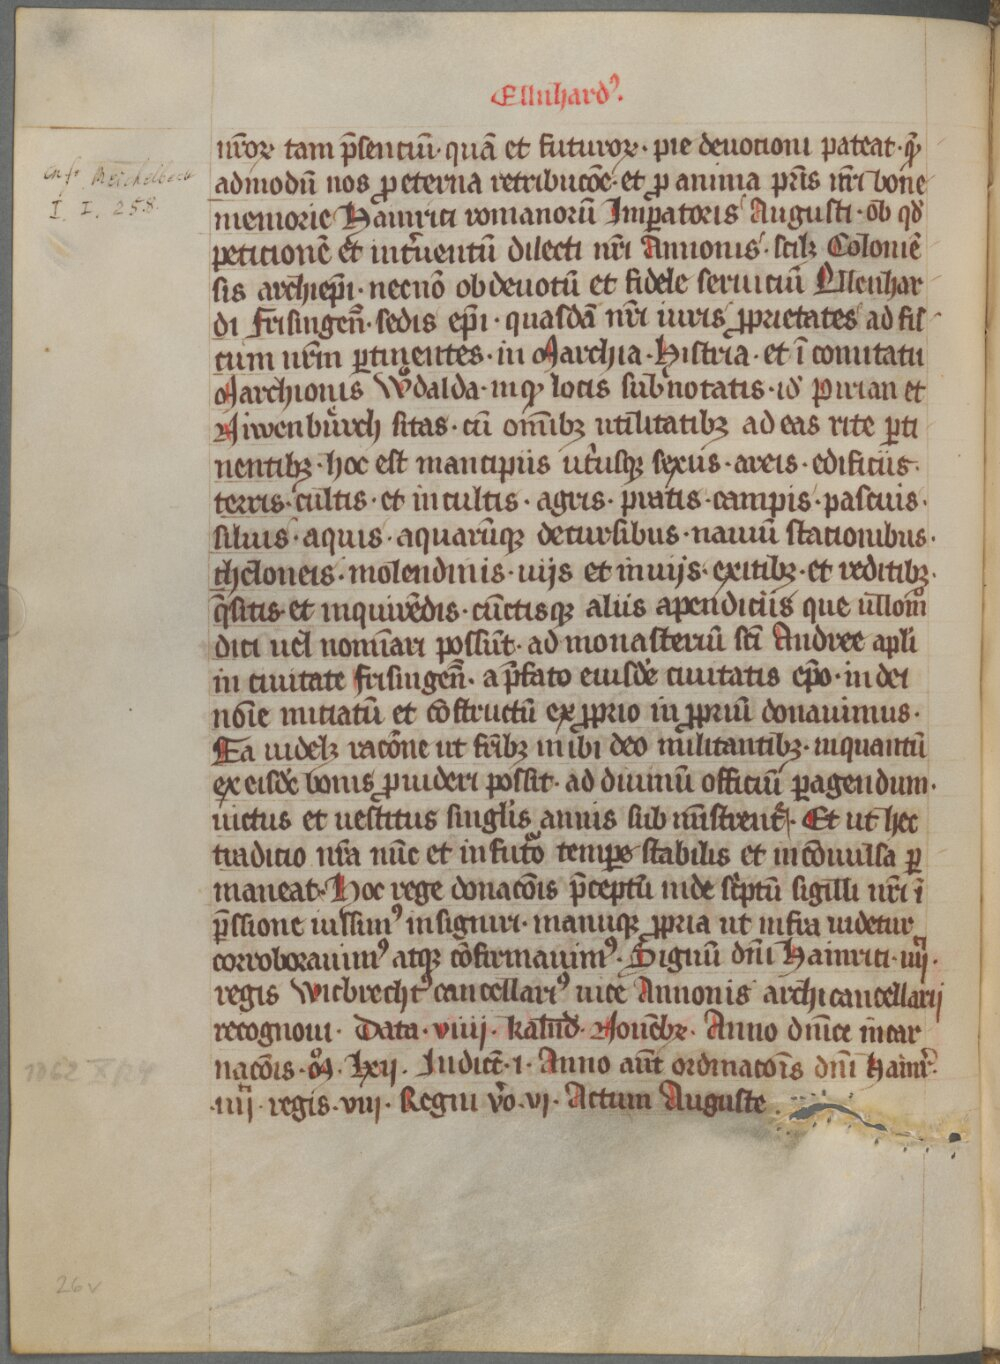 Ellnhardꝰ.
nr̄oꝝ tam p̄sentiū· quā et futuroꝝ· pie deuotioni pateat· qͥ
admodū nos ꝓ eterna retributōe· et ꝓ anima pr̄is nr̄i bone
memorie Hainrici romanorū Imꝑatoris Augusti· ob qd̄
peticionē et int̄uentū dilecti nr̄i Annonis· scilꝫ Coloniē
sis archiep̄i· necnō ob deuotū et fidele seruiciū Ellenhar
di Frisingen̄· sedis ep̄i· quasdā nr̄i iuris ꝓprietates ad fis
cum nr̄m ꝑtinentes· in Marchia· Histria· et ī comitatu
Marchionis Wͦdalda· inqꝫ locis subnotatis· id̄ Pirian et
Niwenbuͤrch sitas· cū om̄ibꝫ utilitatibꝫ ad eas rite ꝑti
nentibꝫ· hoc est mancipiis ut̄usqꝫ sexus· areis· edificiis·
terris· cultis· et incultis· agris· pratis· campis· pascuis·
siluis· aquis· aquarūqꝫ decursibus· nauiū stationibus·
theloneis· molendinis· uijs et inuijs· exitibꝫ· et reditibꝫ·
q̄sitis· et inquirēdis· cūctisqꝫ aliis apendiciis que ullom̊
dici uel nom̄ari possūt· ad monasteriū sc̄i Andree apl̄i
in ciuitate Frisingen̄· a p̄fato eiusdē ciuitatis ep̄o· in dei
noīe initiatū et cōstructū ex ꝓprio in ꝓpriū donauimus·
Ea uidelꝫ racōne ut fr̄ibꝫ inibi deo militantibꝫ· inquantū
ex eisdē bonis ꝓuideri possit· ad diuinū officiū ꝑagendum·
uictus et uestitus singl̄is annis sub mīstrent᷑· Et ut hec
traditio nr̄a nūc et in futͦo tempe stabilis et incōuulsa ꝑ
maneat· Hoc rege donacōis p̄ceptū inde sc̄ptū sigilli nr̄i ī
p̄ssione iussimꝰ insigniri· manuqꝫ ꝓpria ut infra uidetur
corroborauimꝰ atqꝫ cōfirmauimꝰ· Signū dn̄i Hainrici· iiii·
regis Wicbrechtꝰ cancellariꝰ uice Annonis archicancellarij
recognoui· Data· viiii· kalnd̄· Nouēbꝝ· Anno dn̄ice incar
nacōis· ͦM· lxij· Indict̄· i· Anno aūt ordinacōis dn̄i Hainrͥ·
·iiii· regis· viii· Regni v̊o· vi· Actum Auguste
Cnfr. Meichelbeck
I. I. 258.
1062 X/24
26v